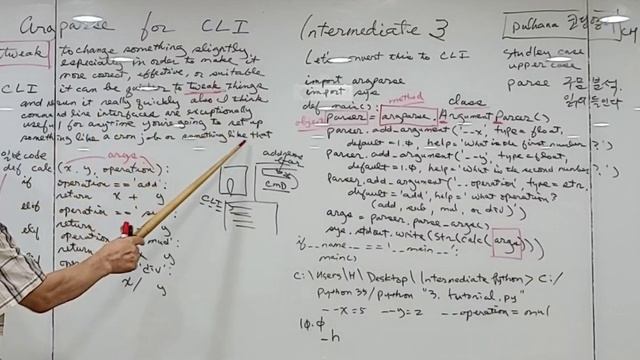 Argparse for CLI
tweak
to change something slightly
especially in order to make it
more correct, effective, or suitable
it can be quicker to tweak things
CLI
and run it really quickly also I think
command line interfaces are exceptionally
useful for anytime you're going to set up
something like a cron job or something like that
args
def calc (x, y, operation):
if operation == 'add':
return x + y
elif operation ==
return y
elif operation
return y
'div':
x / y
CLI
CMD
Intermediate 3
Let's convert this to CLI
import argparse
import sys
def main():
method
class
object
parser = argparse.ArgumentParser()
parser.add_argument('--x', type=float,
default=1.0, help='what is the first number?')
parser.add_argument('--y', type=float,
default=1.0, help='what is the second number?')
parser.add_argument('--operation', type=str,
default='add', help='what operation?
(add, sub, mul, or div)')
args = parser.parse_args()
sys.stdout.write(str(calc(args)))
if __name__ == '__main__':
main()
C:\Users\H\Desktop\Intermediate python> C:/
python 35/python "3. tutorial.py"
--x=5 --y=2 --operation=mul
10.0
-h
studley case
upper case
parse 구문 분석